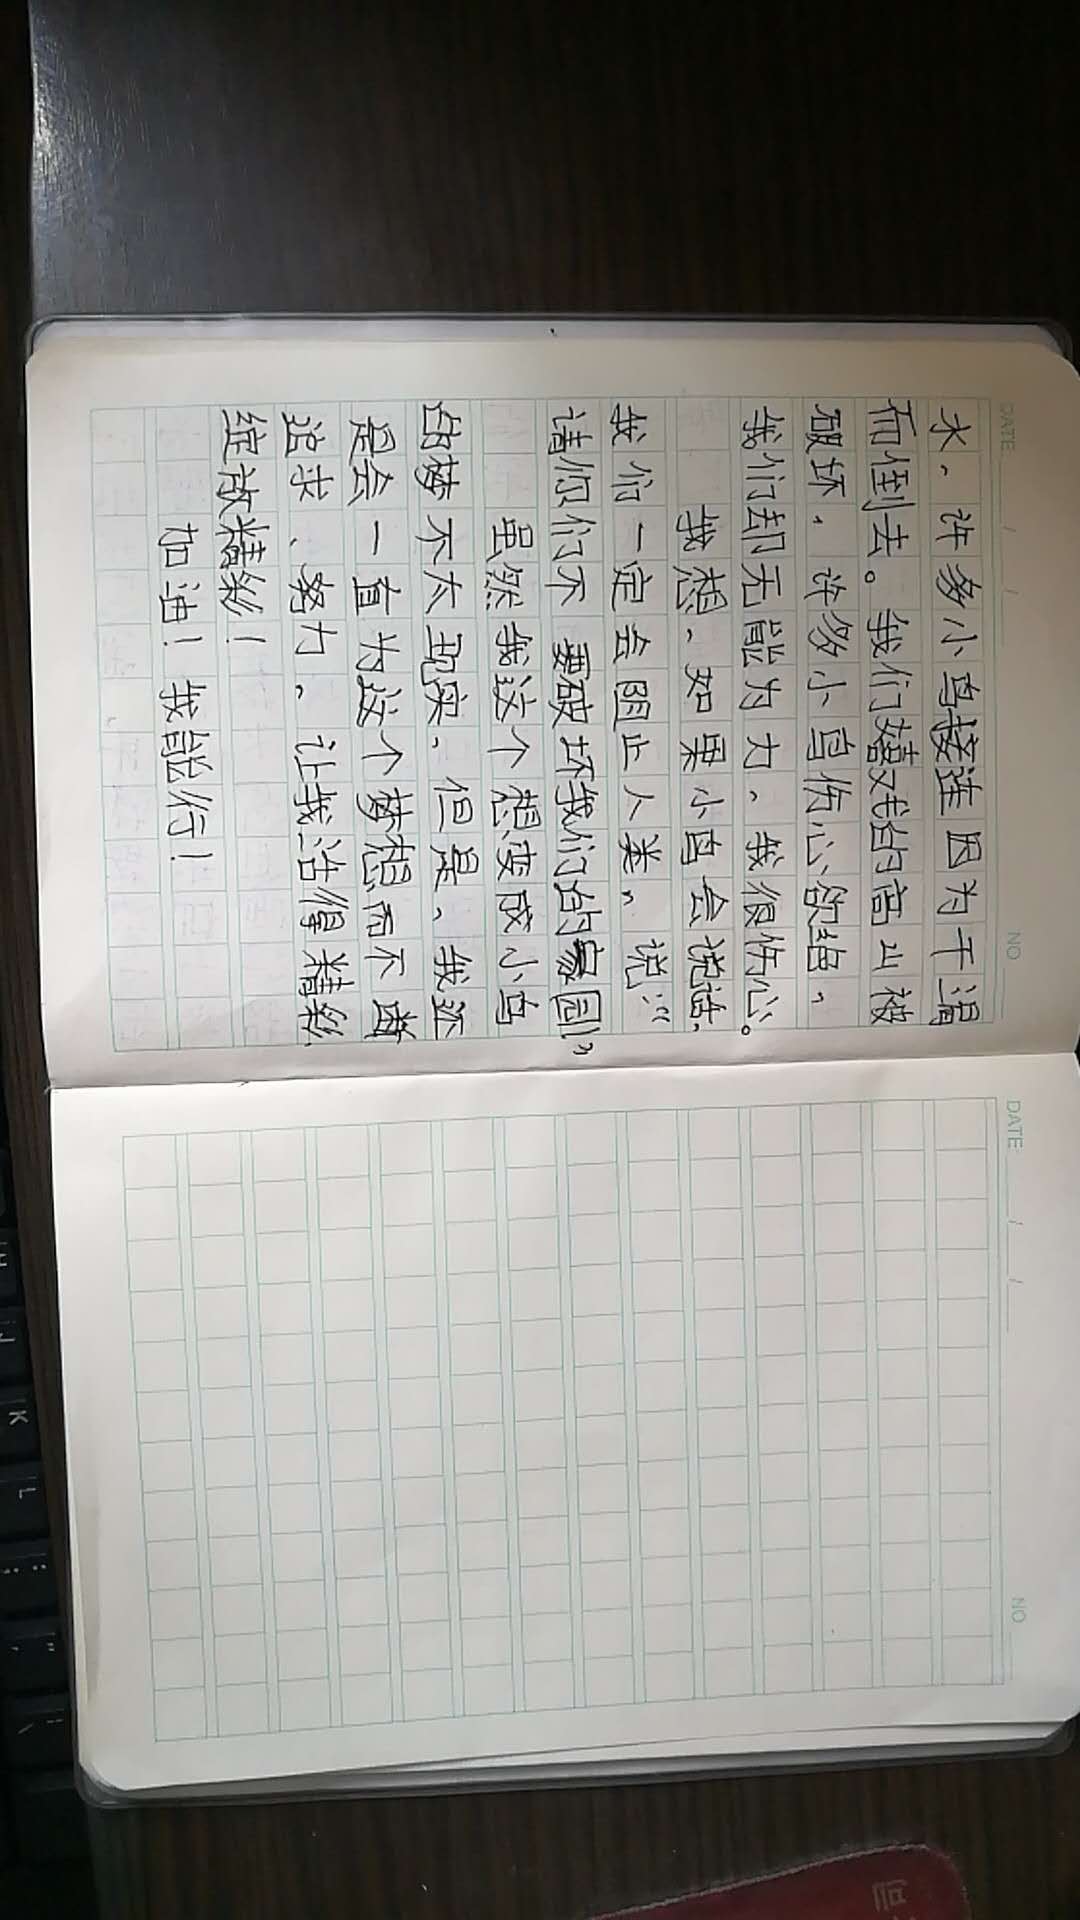 DATE / / NO
水，许多小鸟接连因为干渴
而倒去。我们嬉戏的高山被
破坏，许多小鸟伤心欲绝，
我们却无能为力，我很伤心。
我想，如果小鸟会说话，
我们一定会阻止人类，说：“
请你们不要破坏我们的家园”，
虽然我这个想变成小鸟
的梦不太现实，但是，我还
是会一直为这个梦想而不断
追求、努力，让我活得精彩，
绽放精彩！
加油！我能行！
DATE / / NO
K
L